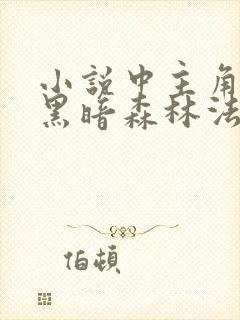 小說中主角
黑暗森林法
伯頓